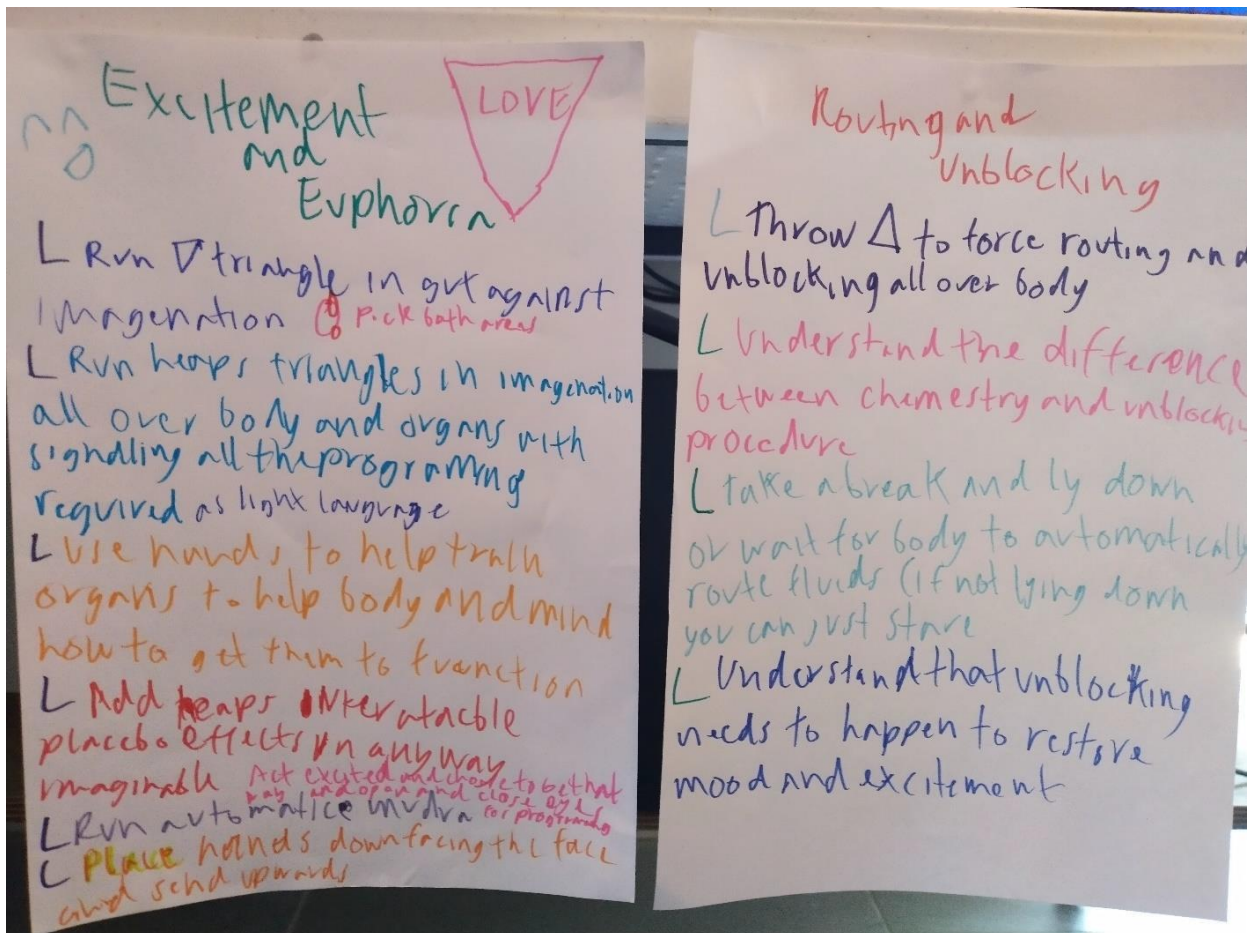 Excitement
and
Euphoria
LOVE
L Run ▽ triangle in gut against
imagenation Pick both areas
L Run heaps triangles in imagenation
all over body and organs with
signalling all the programing
required as light language
L Use hands to help train
organs to help body and mind
how to get them to function
L Add heaps interatacble
placebo effects in anyway
imaginable Act excited and chose to be that
way and open and close eyes
L Run automatice mudra for programing
L Place hands down facing the face
and send upwards
Routing and
unblocking
L Throw △ to force routing and
unblocking all over body
L Understand the difference
between chemestry and unblocking
procedure
L take a break and ly down
or wait for body to automatically
route fluids (if not lying down
you can just stare
L Understand that unblocking
needs to happen to restore
mood and excitement